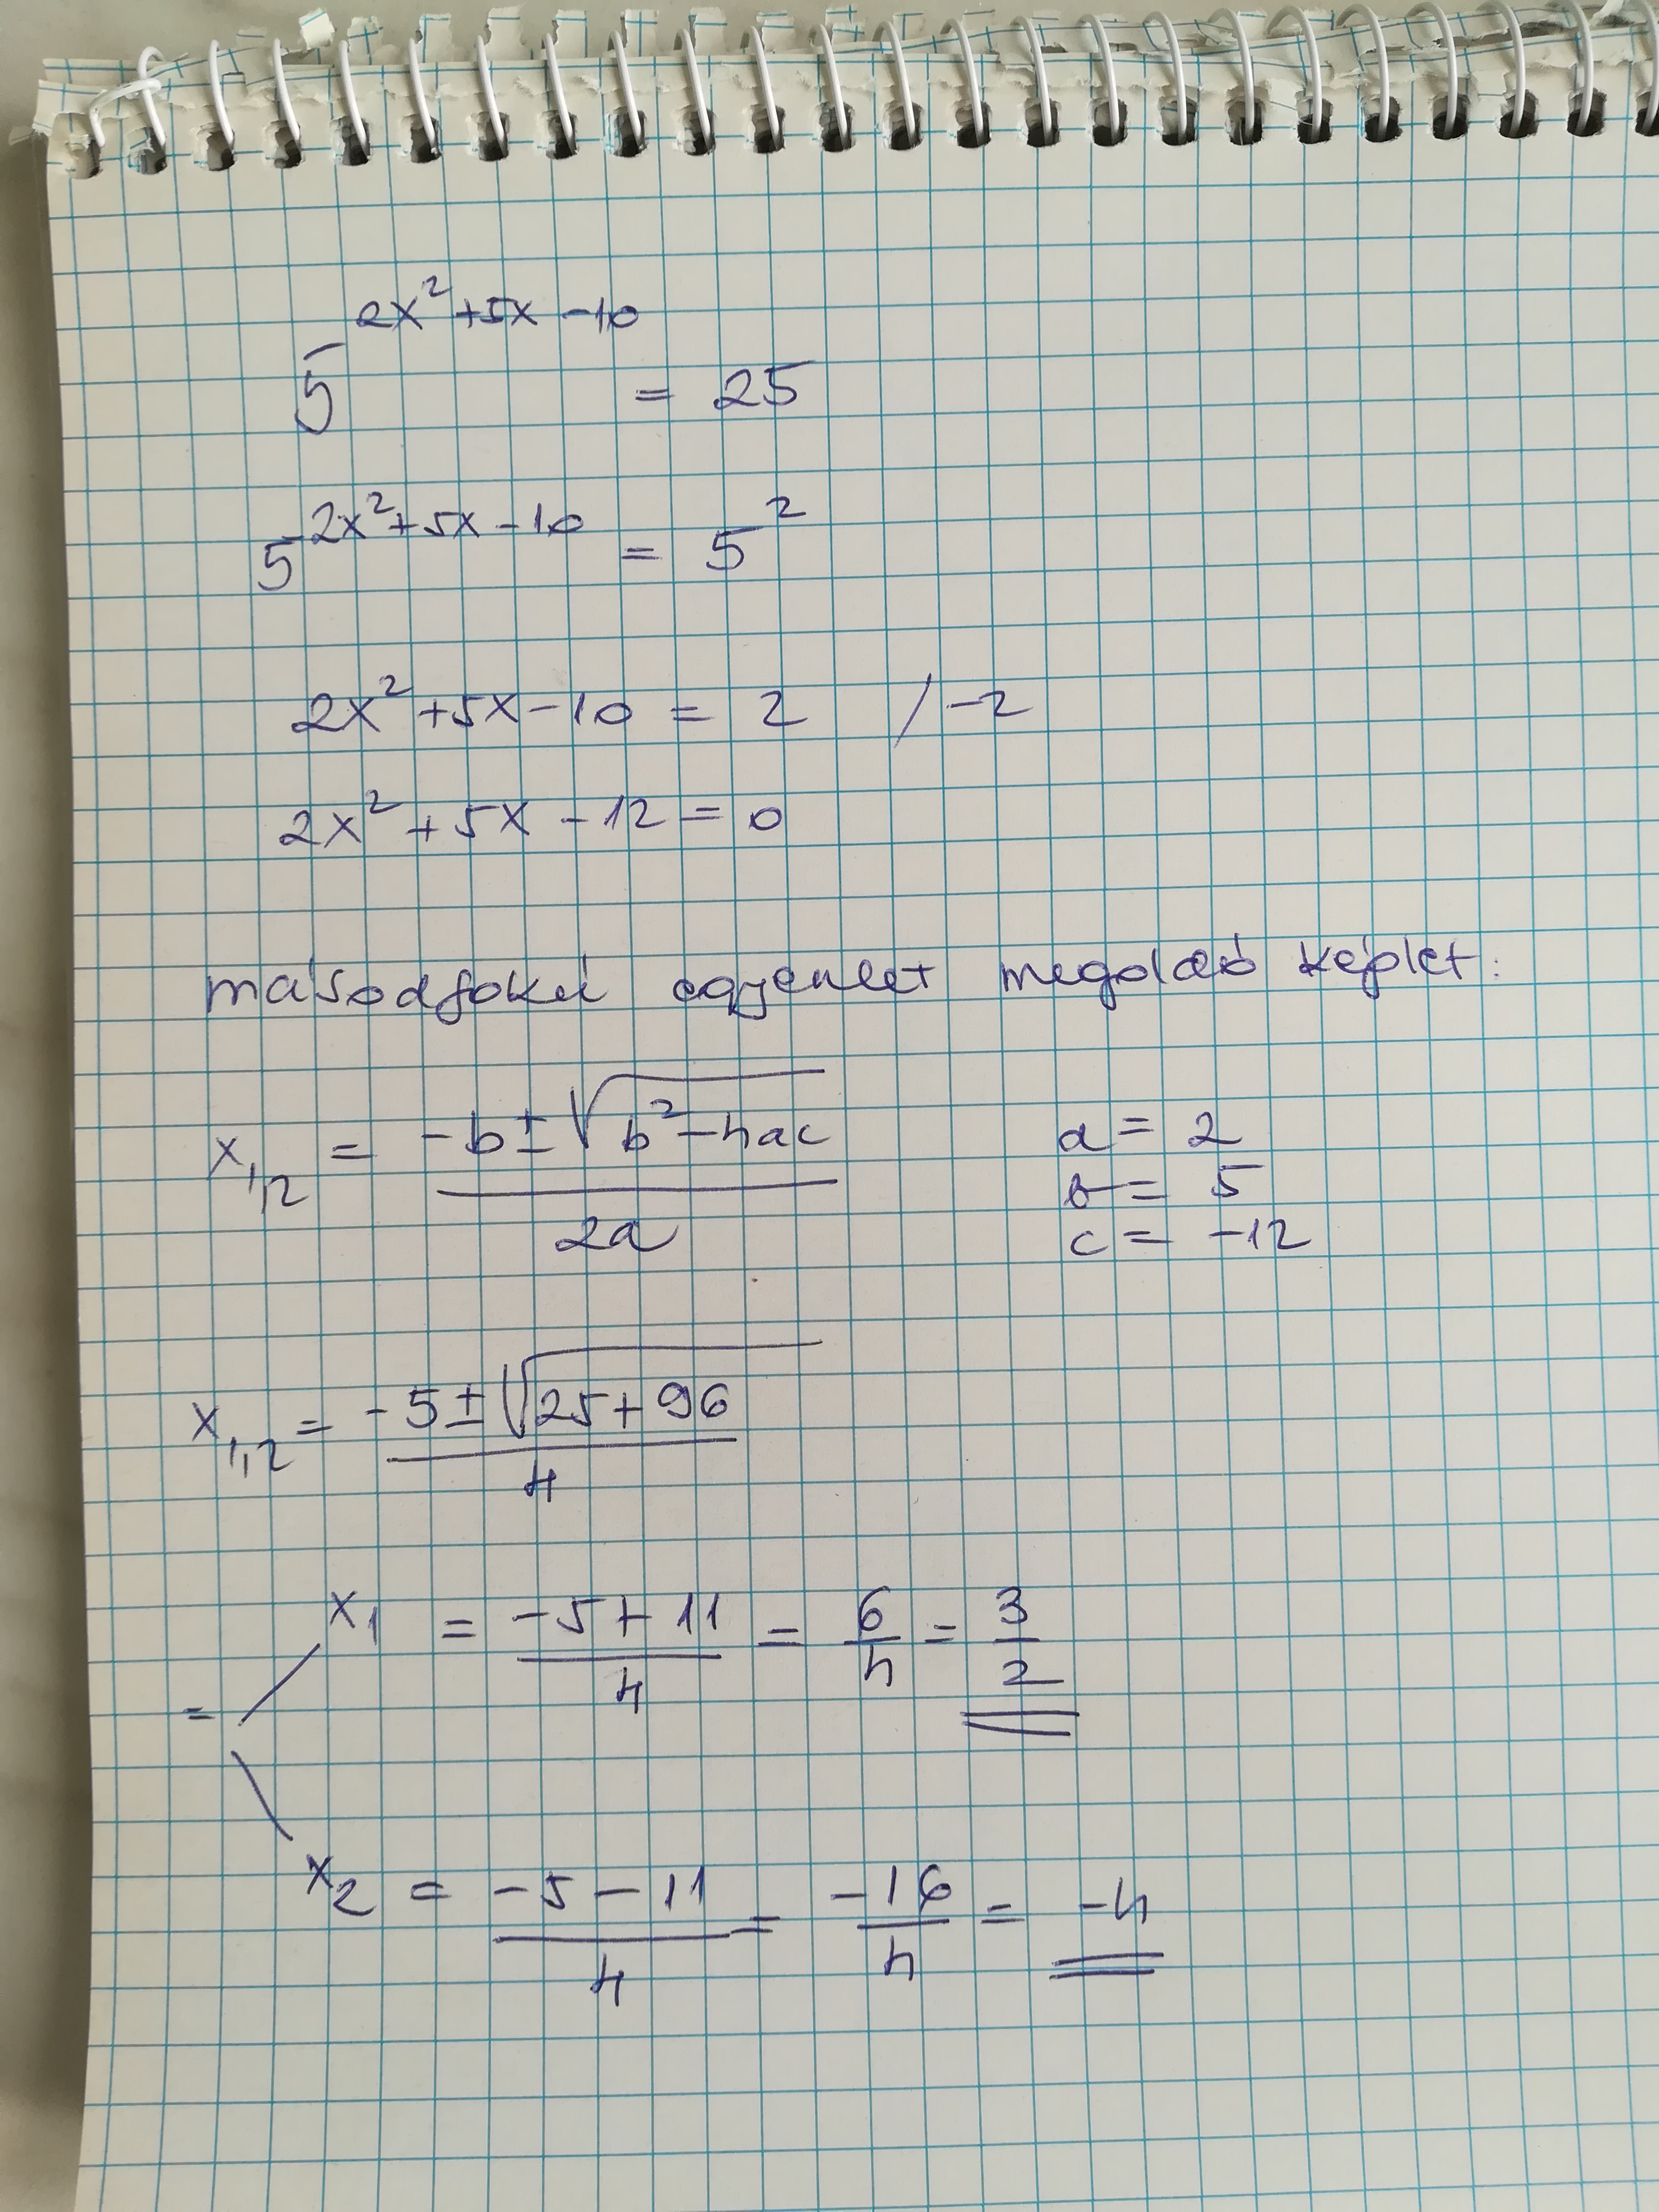 5^(2x²+5x-10) = 25
5^(2x²+5x-10) = 5²
2x²+5x-10 = 2 /-2
2x²+5x-12=0
másodfokú egyenlet megoldó képlet:
x₁,₂ = (-b±√(b²-4ac))/(2a)
a = 2
b = 5
c = -12
x₁,₂ = (-5±√(25+96))/4
= x₁ = (-5+11)/4 = 6/4 = 3/2
x₂ = (-5-11)/4 = -16/4 = -4